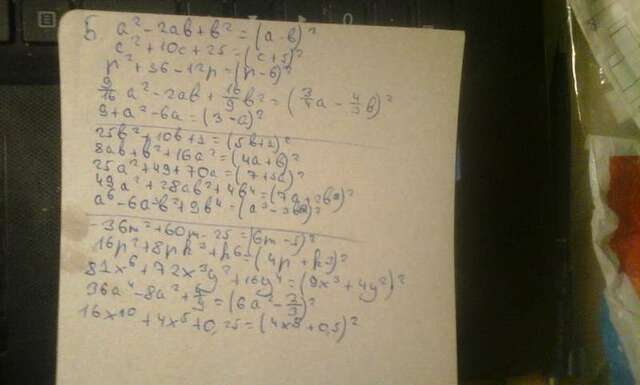 5 a² - 2ab + b² = (a - b)²
c² + 10c + 25 = (c + 5)²
p² + 36 - 12p = (p - 6)²
9/16 a² - 2ab + 16/9 b² = (3/4 a - 4/3 b)²
9 + a² - 6a = (3 - a)²
25b² + 10b + 1 = (5b + 1)²
8ab + b² + 16a² = (4a + b)²
25a² + 49 + 70a = (7 + 5a)²
49a² + 28ab² + 4b⁴ = (7a + 2b²)²
a⁶ - 6a³b² + 9b⁴ = (a³ - 3b²)²
-36m² + 60m - 25 = (6m - 5)²
16p² + 8pk³ + k⁶ = (4p + k³)²
81x⁶ + 72x³y² + 16y⁴ = (9x³ + 4y²)²
36a⁴ - 8a² + 4/9 = (6a² - 2/3)²
16x¹⁰ + 4x⁵ + 0,25 = (4x⁵ + 0,5)²